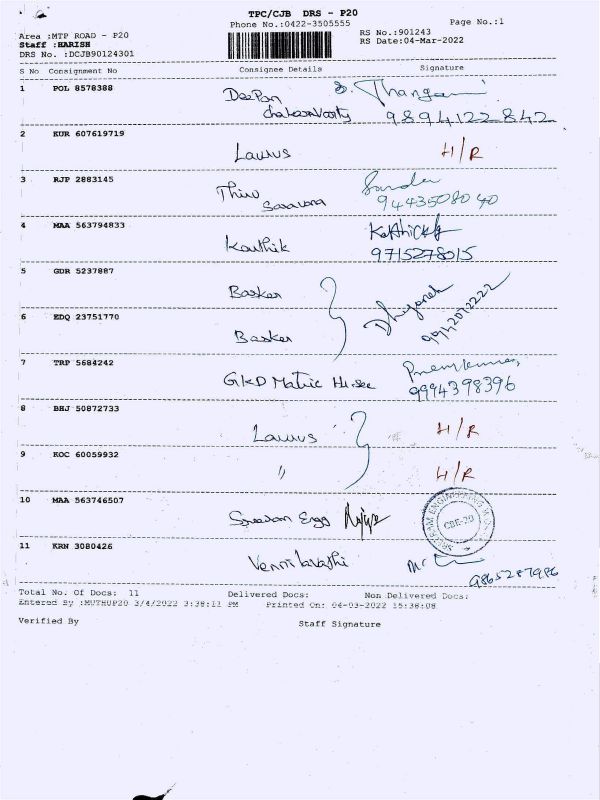 TPC/CJB DRS - P20
Phone No.:0422-3505555 Page No.:1
Area :MTP ROAD - P20 RS No.:901243
Staff :HARISH RS Date:04-Mar-2022
DRS No. :DCJB90124301
S No Consignment No Consignee Details Signature
1 POL 8578388 Deepan
Chakravarty 9894122842
2 KUR 607619719
Laurus H/R
3 RJP 2883145 Thiru
Saravana 9443508040
4 MAA 563794833 Karthick
Karthik 9715278015
5 GDR 5237887
Basker
6 EDQ 23751770
Basker
7 TRP 5684242 Premkumar
GKD Matric Hr.sec 9994398396
8 BHJ 50872733
Laurus H/R
9 KOC 60059932
" H/R
10 MAA 563746507
Engg CBE-20
11 KRN 3080426
9865287986
Total No. Of Docs: 11 Delivered Docs: Non Delivered Docs:
Entered By :MUTHUP20 3/4/2022 3:38:11 PM Printed On: 04-03-2022 15:38:08
Verified By Staff Signature